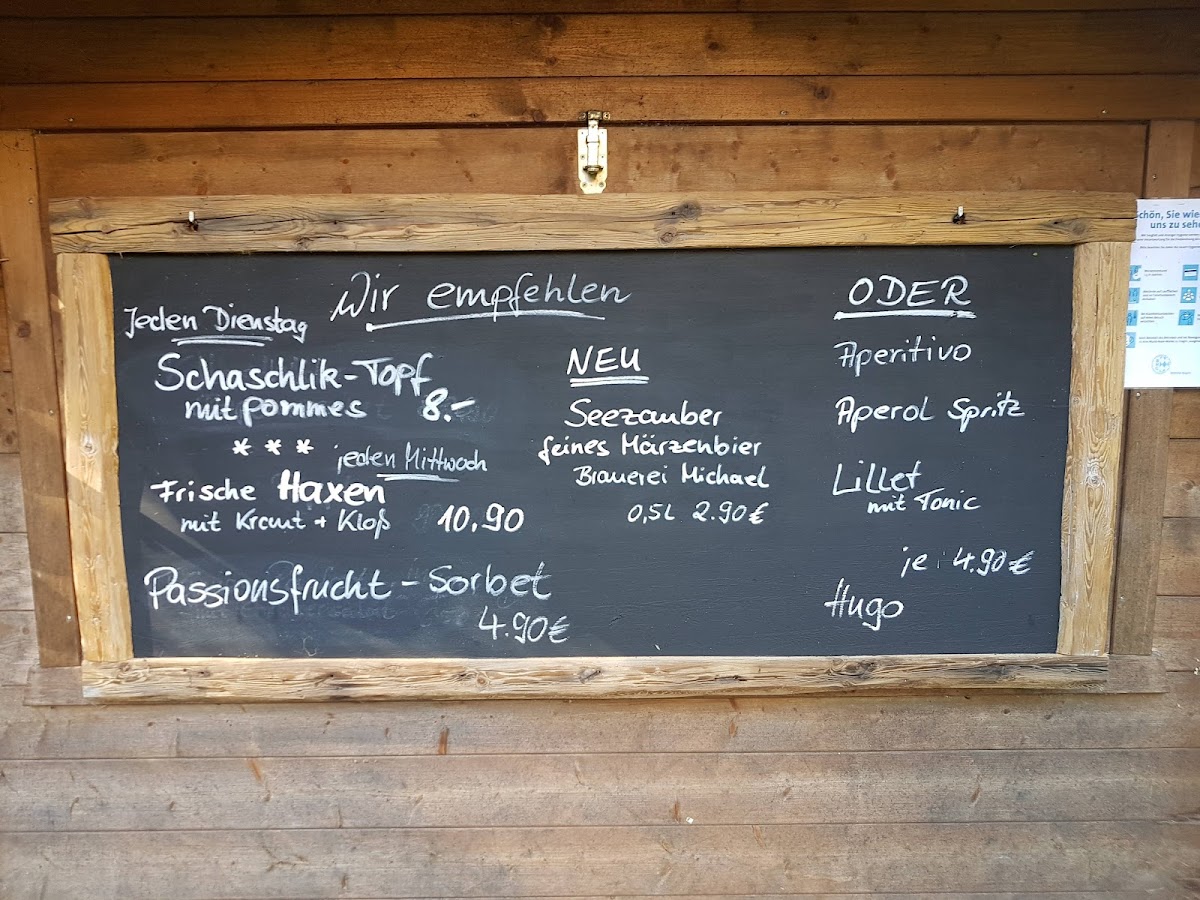 Wir empfehlen
Jeden Dienstag
Schaschlik-Topf
mit pommes 8.-
* * * jeden Mittwoch
Frische Haxen
mit Kraut + Kloß 10,90
Passionsfrucht - Sorbet
4.90€
NEU
Seezauber
feines Märzenbier
Brauerei Michael
0,5L 2.90€
ODER
Aperitivo
Aperol Spritz
Lillet
mit Tonic
je: 4.90€
Hugo
schön, Sie wie
uns zu seh